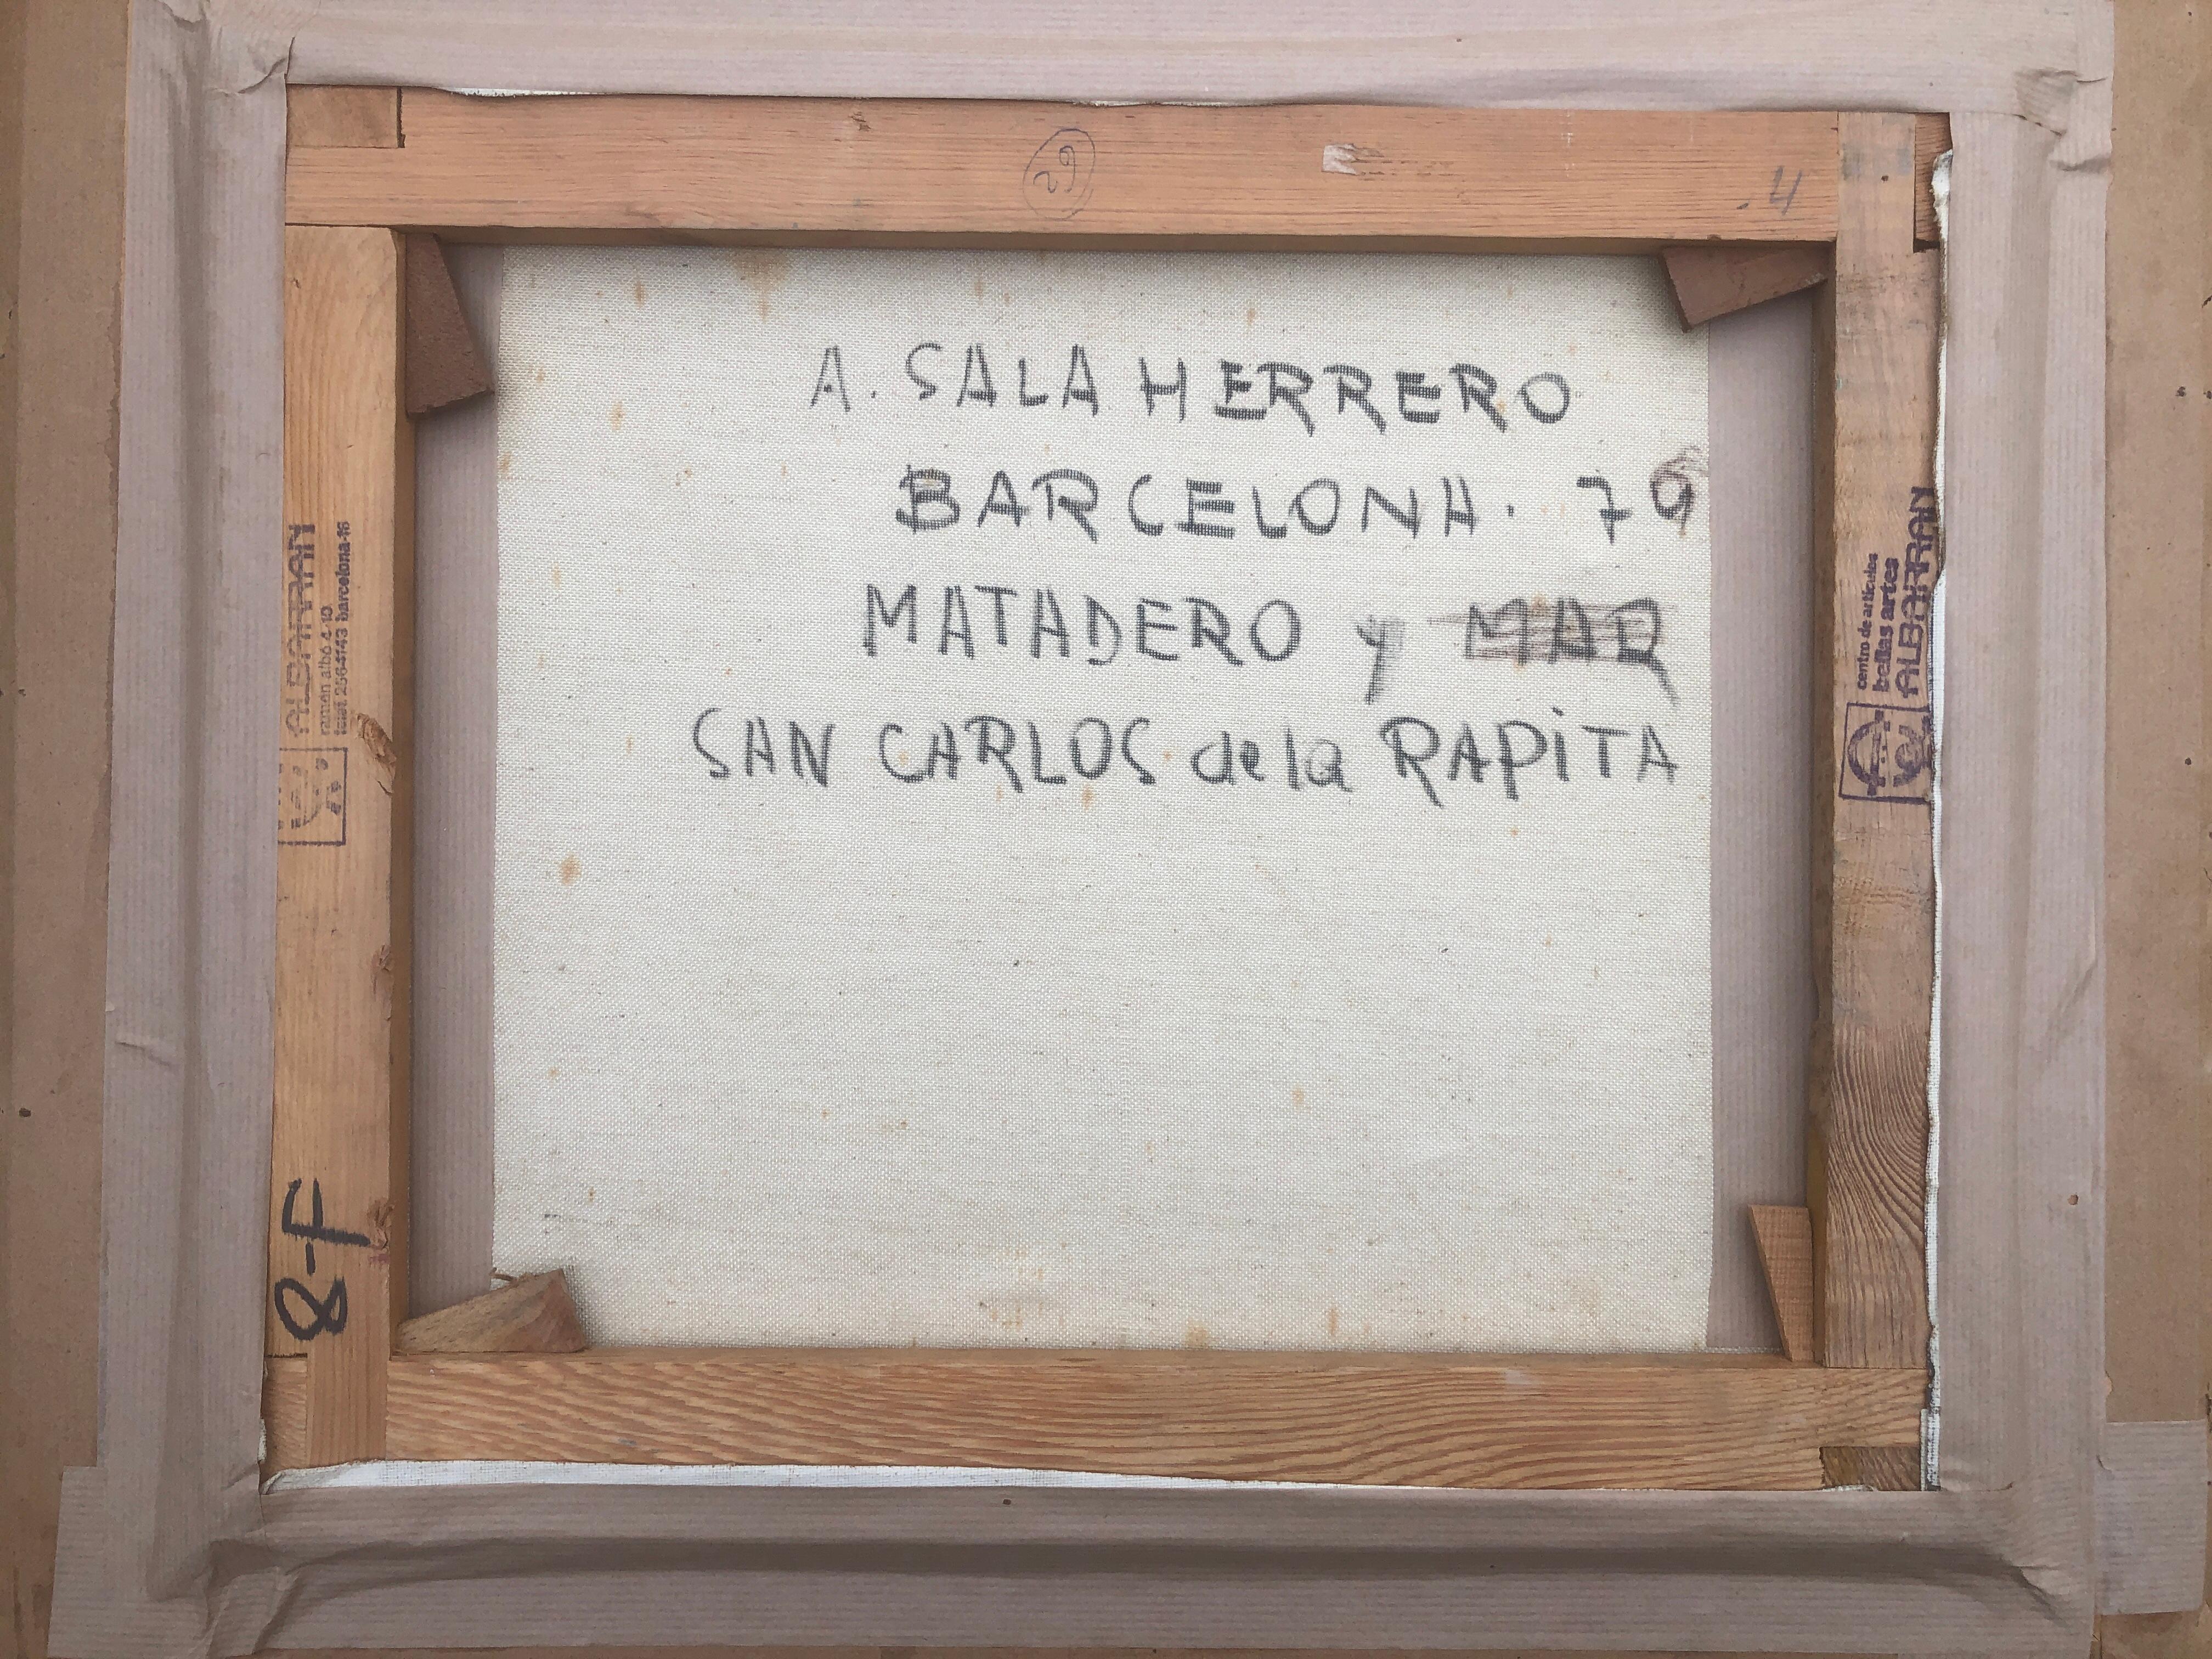 29
. 4
A. SALA HERRERO
BARCELONA. 79
MATADERO y MAR
SAN CARLOS de la RAPiTA
ALBARRAN
ramón albó 4-10
telef. 2564143 barcelona-16
centro de artículos
bellas artes
ALBARRAN
8-F